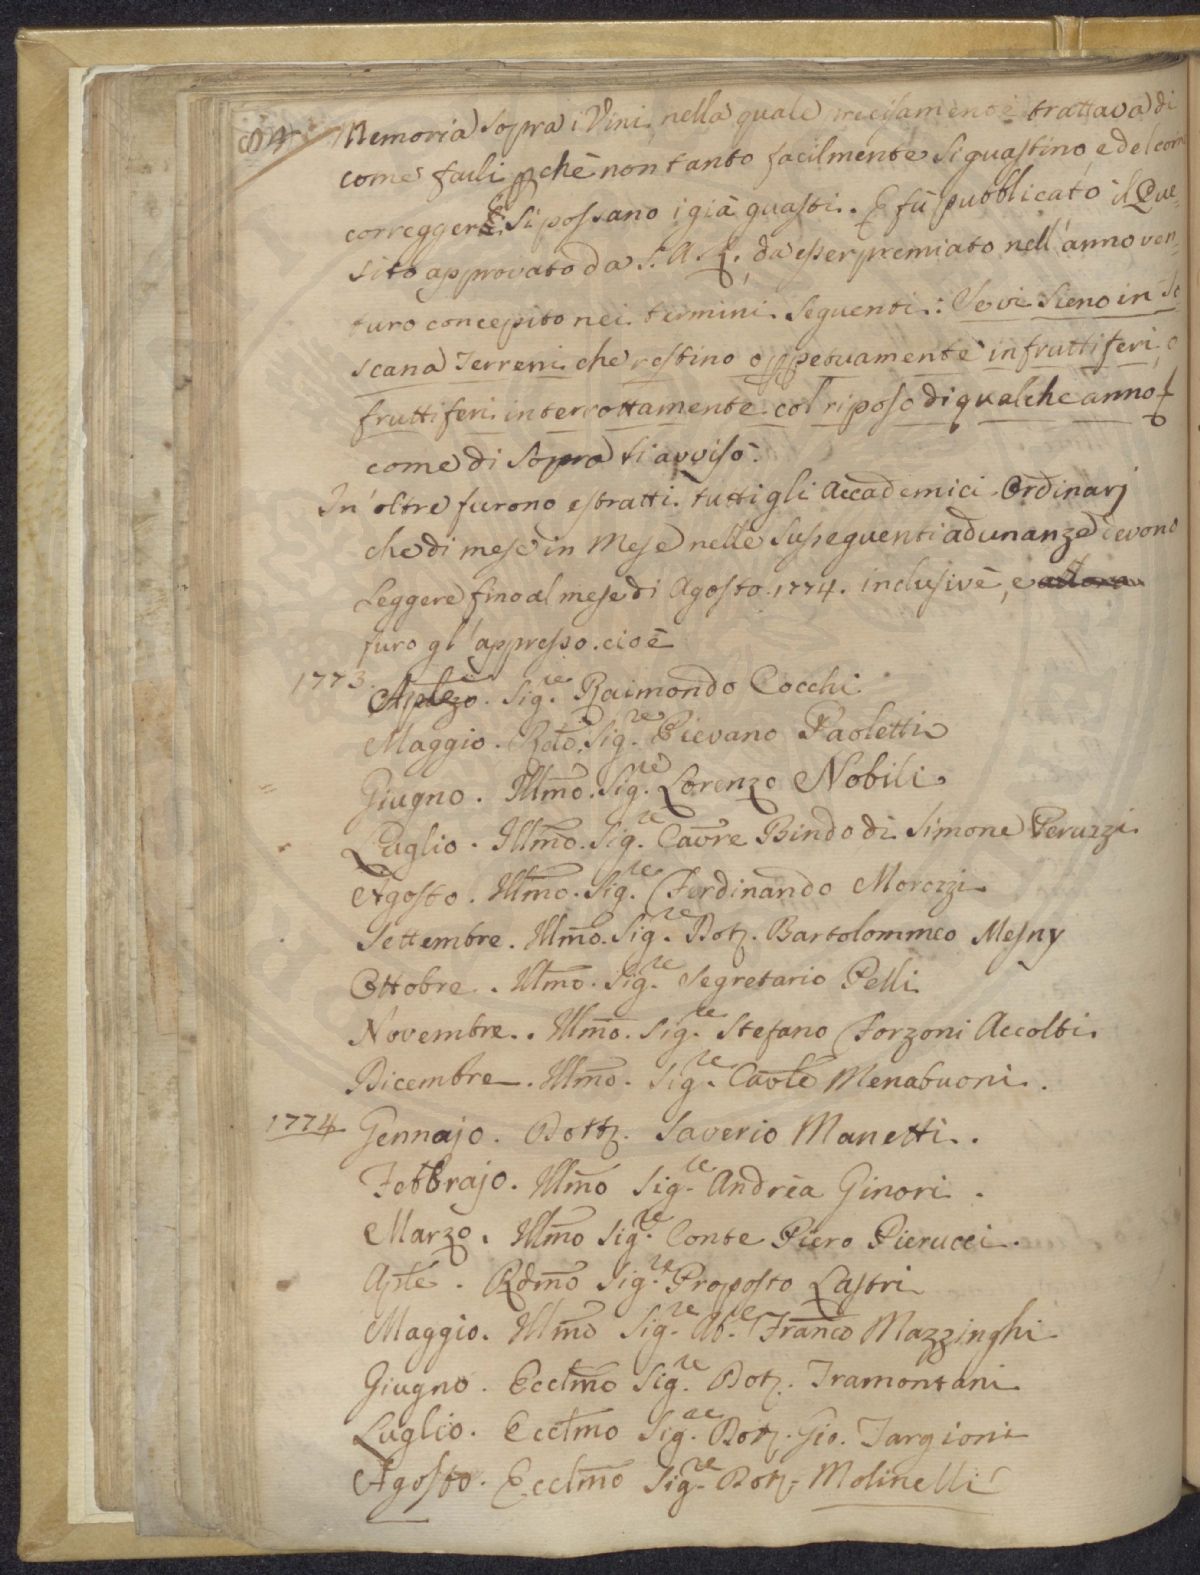 84
Memoria sopra i Vini nella quale precisamente trattava di
come farli pchè non tanto facilmente si guastino, e del come
corregger si possano i già guasti. E fù pubblicato il Que-
sito approvato da S. A. R. da esser premiato nell'anno ven-
turo concepito nei termini seguenti: Se vi sieno in To
scana Terreni che restino o ppetuamente infruttiferi, o
fruttiferi interrottamente col riposo di qualche anno
come di sopra si avvisò.
In oltre furono estratti tutti gli Accademici Ordinarj
che di mese in Mese nelle susseguenti adunanze devono
Leggere fino al mese di Agosto 1774. inclusivè, e
furo gl'appresso. cioè
1773. Sig.re Raimondo Cocchi
Maggio. Sig.re Pievano Paoletti
Giugno. Illmo. Sig.re Lorenzo Nobili
Luglio. Illmo. Sig.re Cavre Bindo di Simone Peruzzi
Agosto. Illmo. Sig.re Ferdinando Morozzi
Settembre. Illmo. Sig.re Dott. Bartolommeo Mesny
Ottobre. Illmo. Sig.re Segretario Pelli
Novembre. Illmo. Sig.re Stefano Forzoni Accolti.
Dicembre. Illmo. Sig.re Menabuoni.
1774 Gennajo. Dott. Saverio Manetti.
Febbrajo. Illmo Sig.re Andrèa Ginori.
Marzo. Illmo Sig.re Conte Piero Pierucci.
Aple. Rdmo Sig.re Proposto Lastri
Maggio. Illmo Sig.re Ab.e Franco Mazzinghi
Giugno. Ecclmo Sig.re Dott. Tramontani
Luglio. Ecclmo Sig.re Dott. Gio. Targioni
Agosto. Ecclmo Sig.re Dott. Molinelli